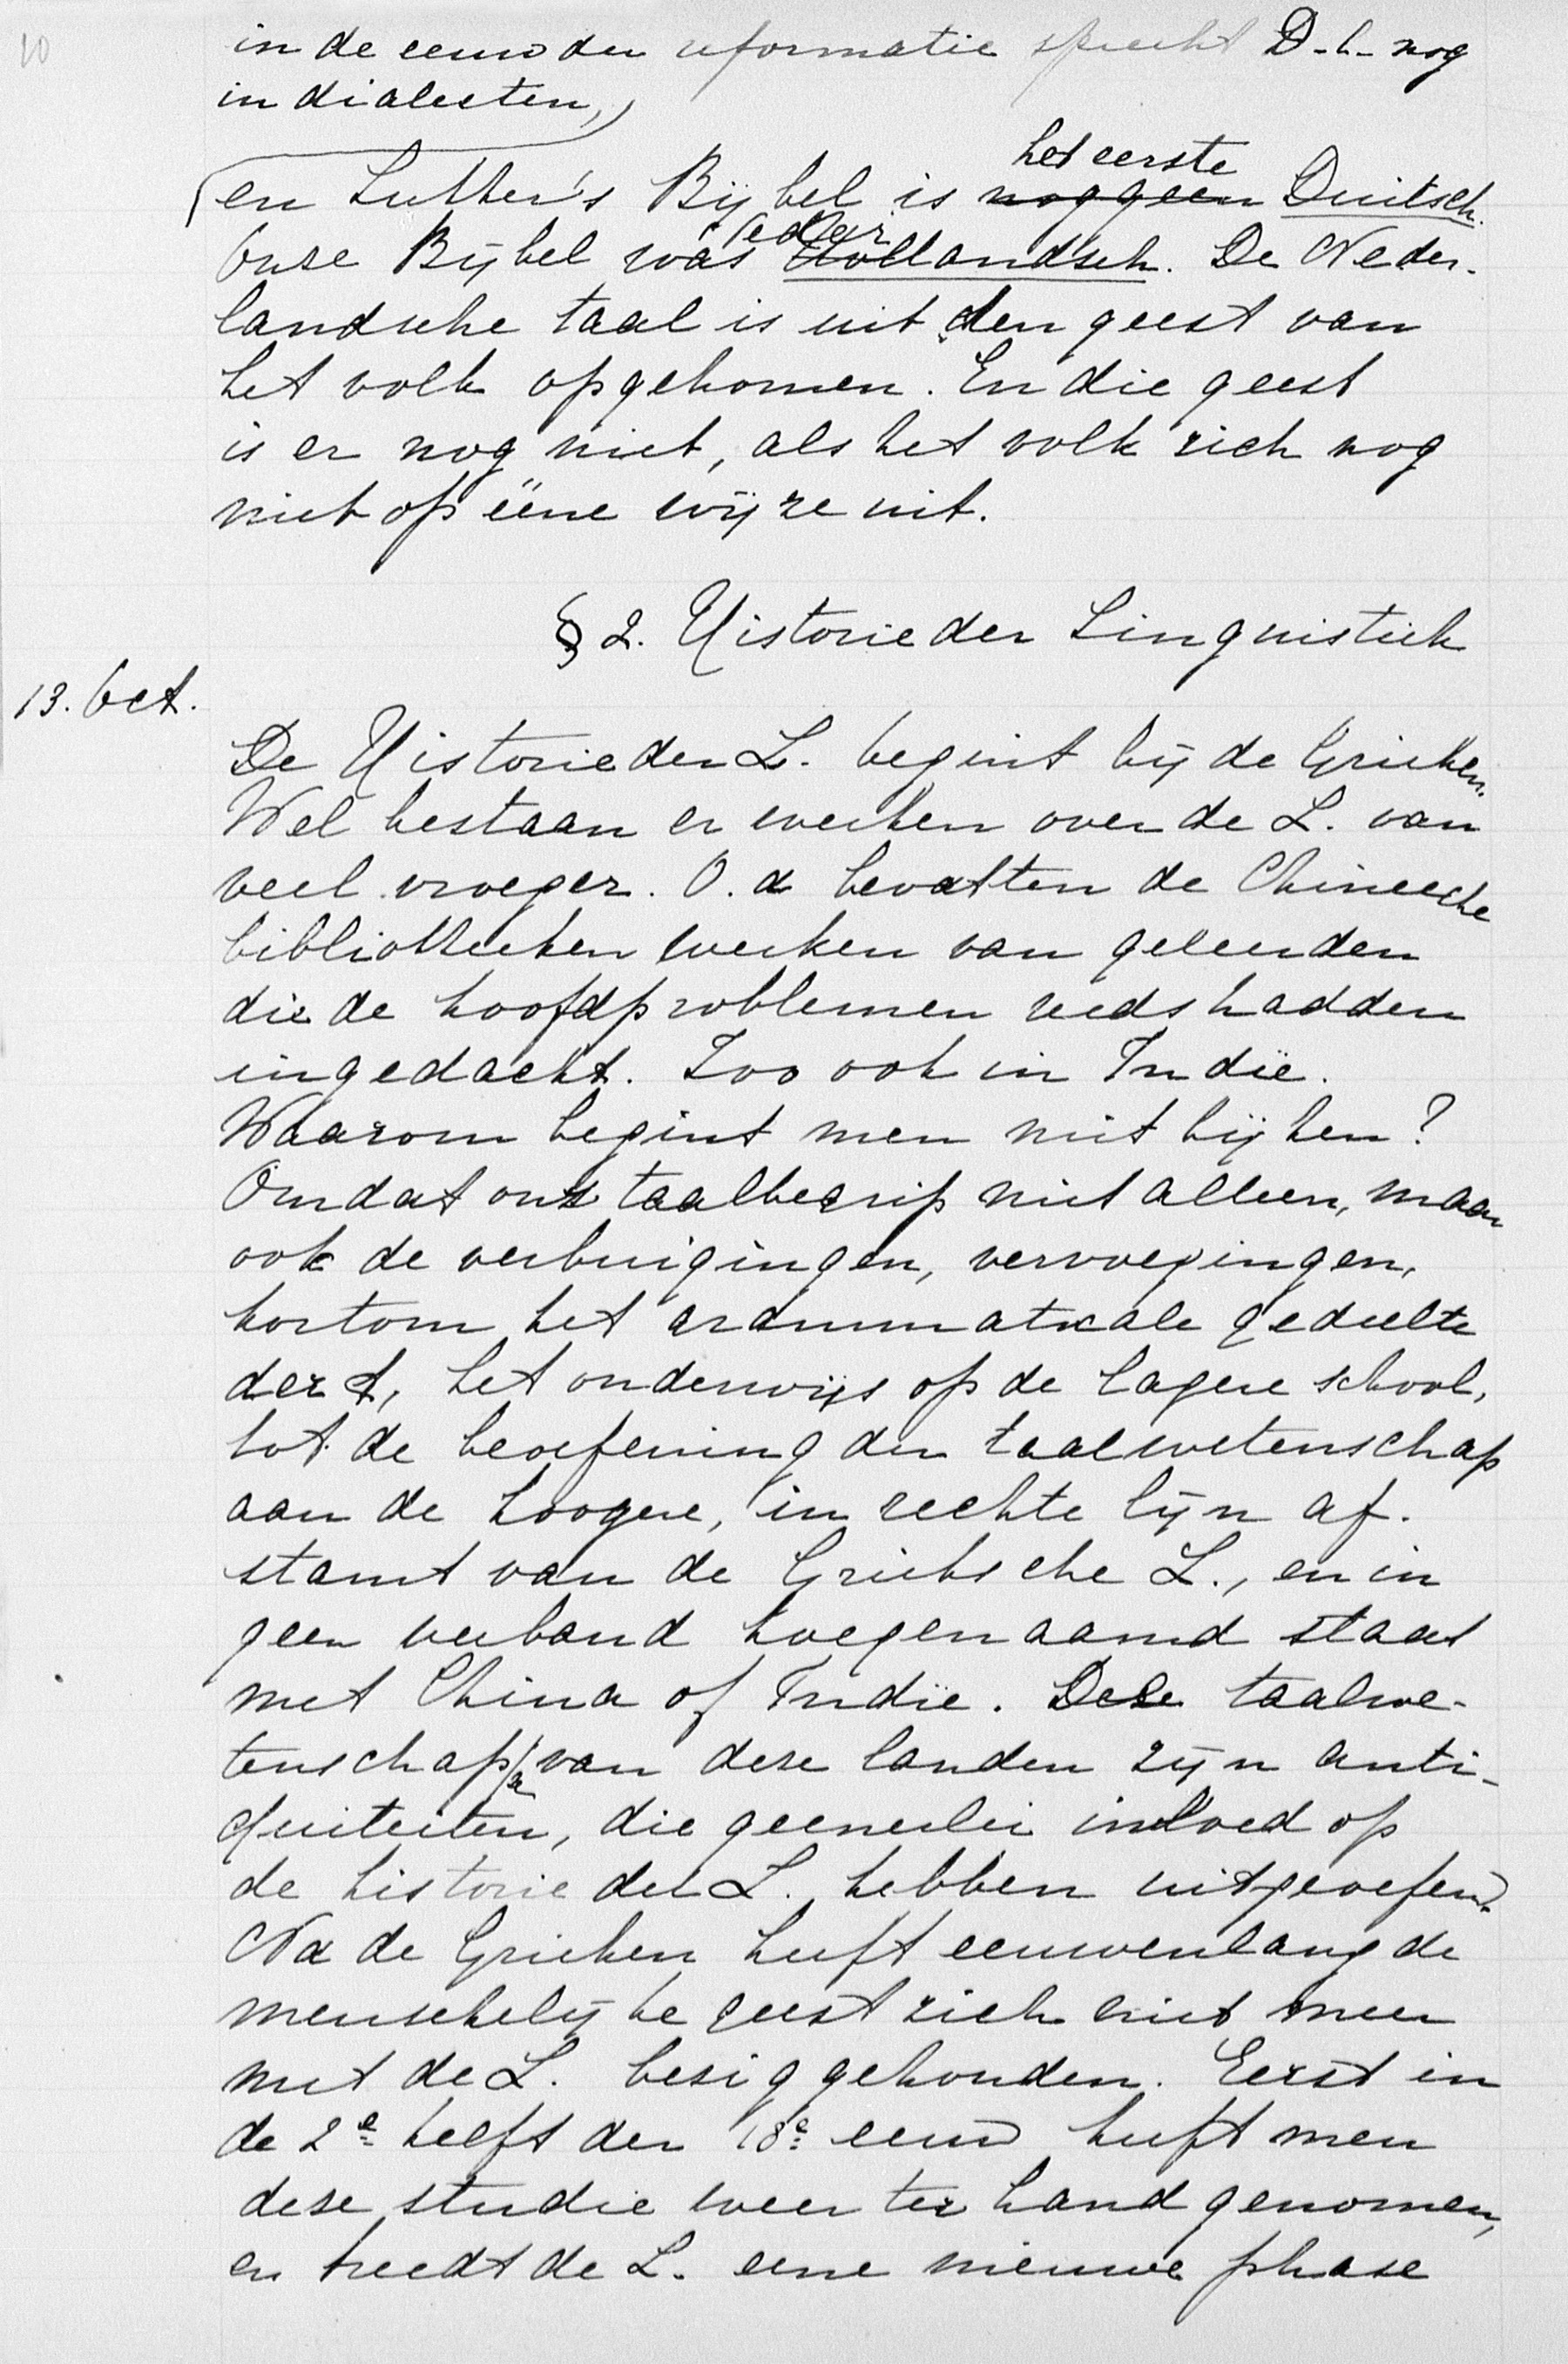 10
in de eeuw der reformatie spreekt D-l- nog
in dialecten,
het eerste
en Luther's Bijbel is nog geen Duitsch.
Neder
Onze Bijbel was Hollandsch. De Neder-
landsche taal is uit den geest van
het volk opgekomen. En die geest
is er nog niet, als het volk zich nog
niet op ééne wijze uit.
§ 2. Historie der Linguistiek
13. Oct.
De Historie der L. begint bij de Grieken.
Wel bestaan er werken over de L. van
veel vroeger. O.a bevatten de Chineesche
bibliotheeken werken van geleerden
die de hoofdproblemen reeds hadden
ingedacht. Zoo ook in Indïe.
Waarom begint men niet bij hen?
Omdat ons taalbegrip niet alleen, maar
ook de verbuigingen, vervoegingen,
kortom het grammaticale gedeelte
der t, het onderwijs op de lagere school,
tot de beoefening der taalwetenschap
aan de hoogere, in rechte lijn af-
stamt van de Grieksche L., en in
geen verband hoegenaamd staat
met China of Indïe. Deze taalwe-
tenschappen van deze landen zijn anti-
quiteiten, die geenerlei invloed op
de historie der L. hebben uitgeoefend.
Na de Grieken heeft eeuwenlang de
menschelijke geest zich niet meer
met de L. bezig gehouden. Eerst in
de 2e helft der 18e eeuw heeft men
deze studie weer ter hand genomen,
en treedt de L. eene nieuwe phase